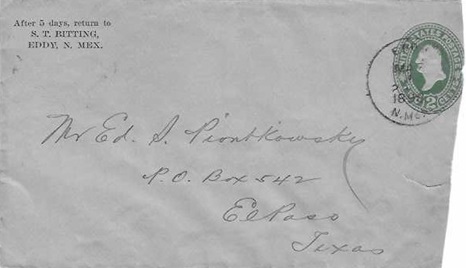 After 5 days, return to
S. T. BITTING,
EDDY, N. MEX.
UNITED STATES POSTAGE
TWO CENTS
2
18
N. MEX
Mr Ed. S. Piontkowsky
P.O. Box 542
El Paso
Texas